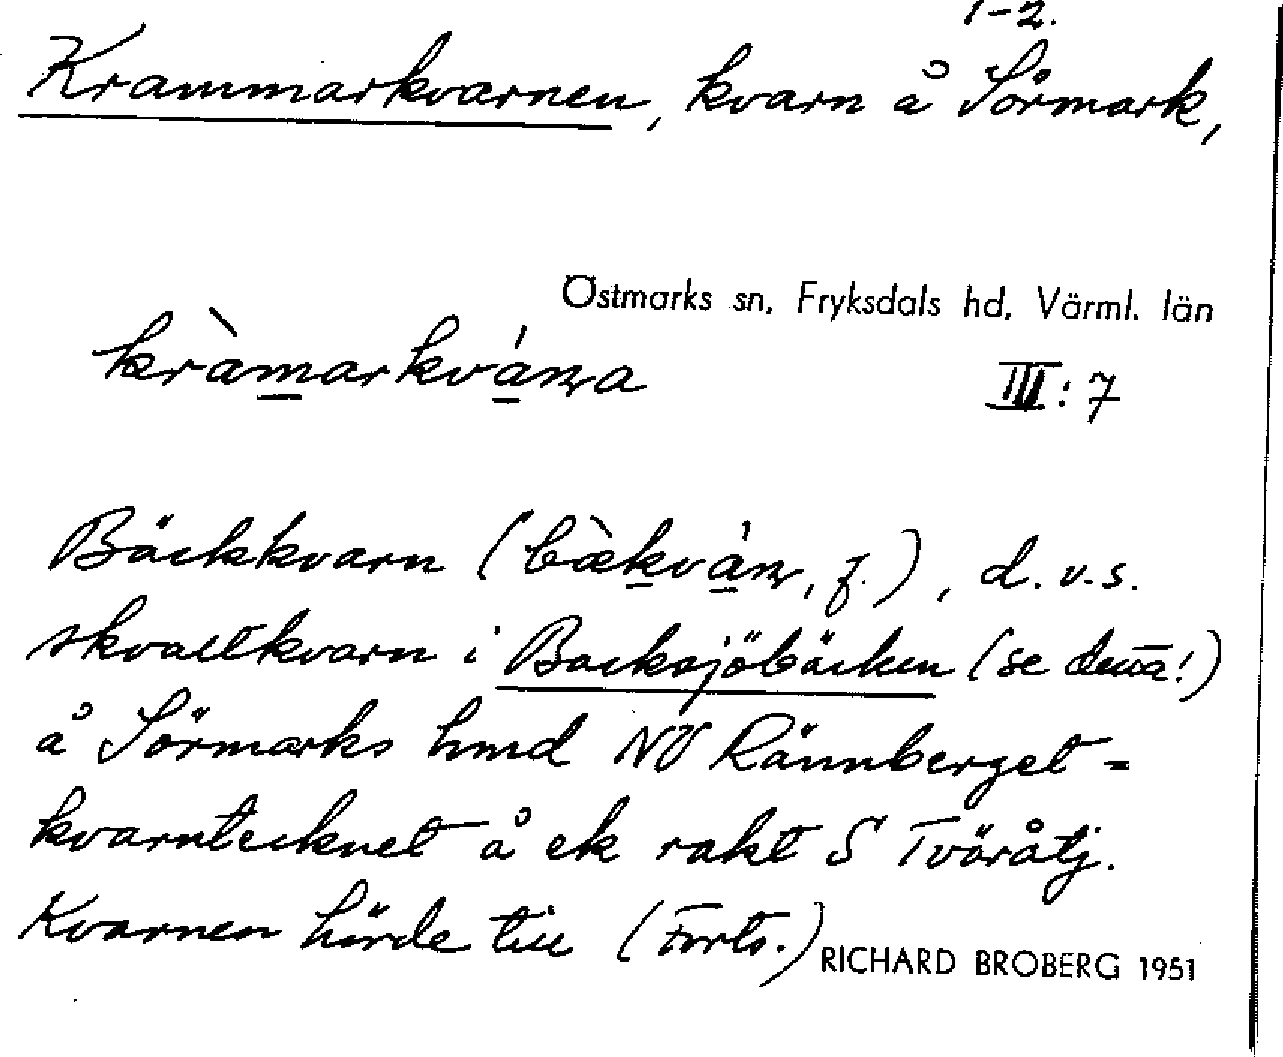 1-2.
Krammarkvarnen, kvarn å Sörmark,
Östmarks sn, Fryksdals hd, Värml. län
kràmarkvána
III:7
Bäckkvarn (bækván, f.), d.v.s.
skvaltkvarn i Backsjöbäcken (se denna!)
å Sörmarks hmd NV Rännberget =
kvarntecknet å ek rakt S Tväråtj.
Kvarnen hörde till (Forts.)
RICHARD BROBERG 1951